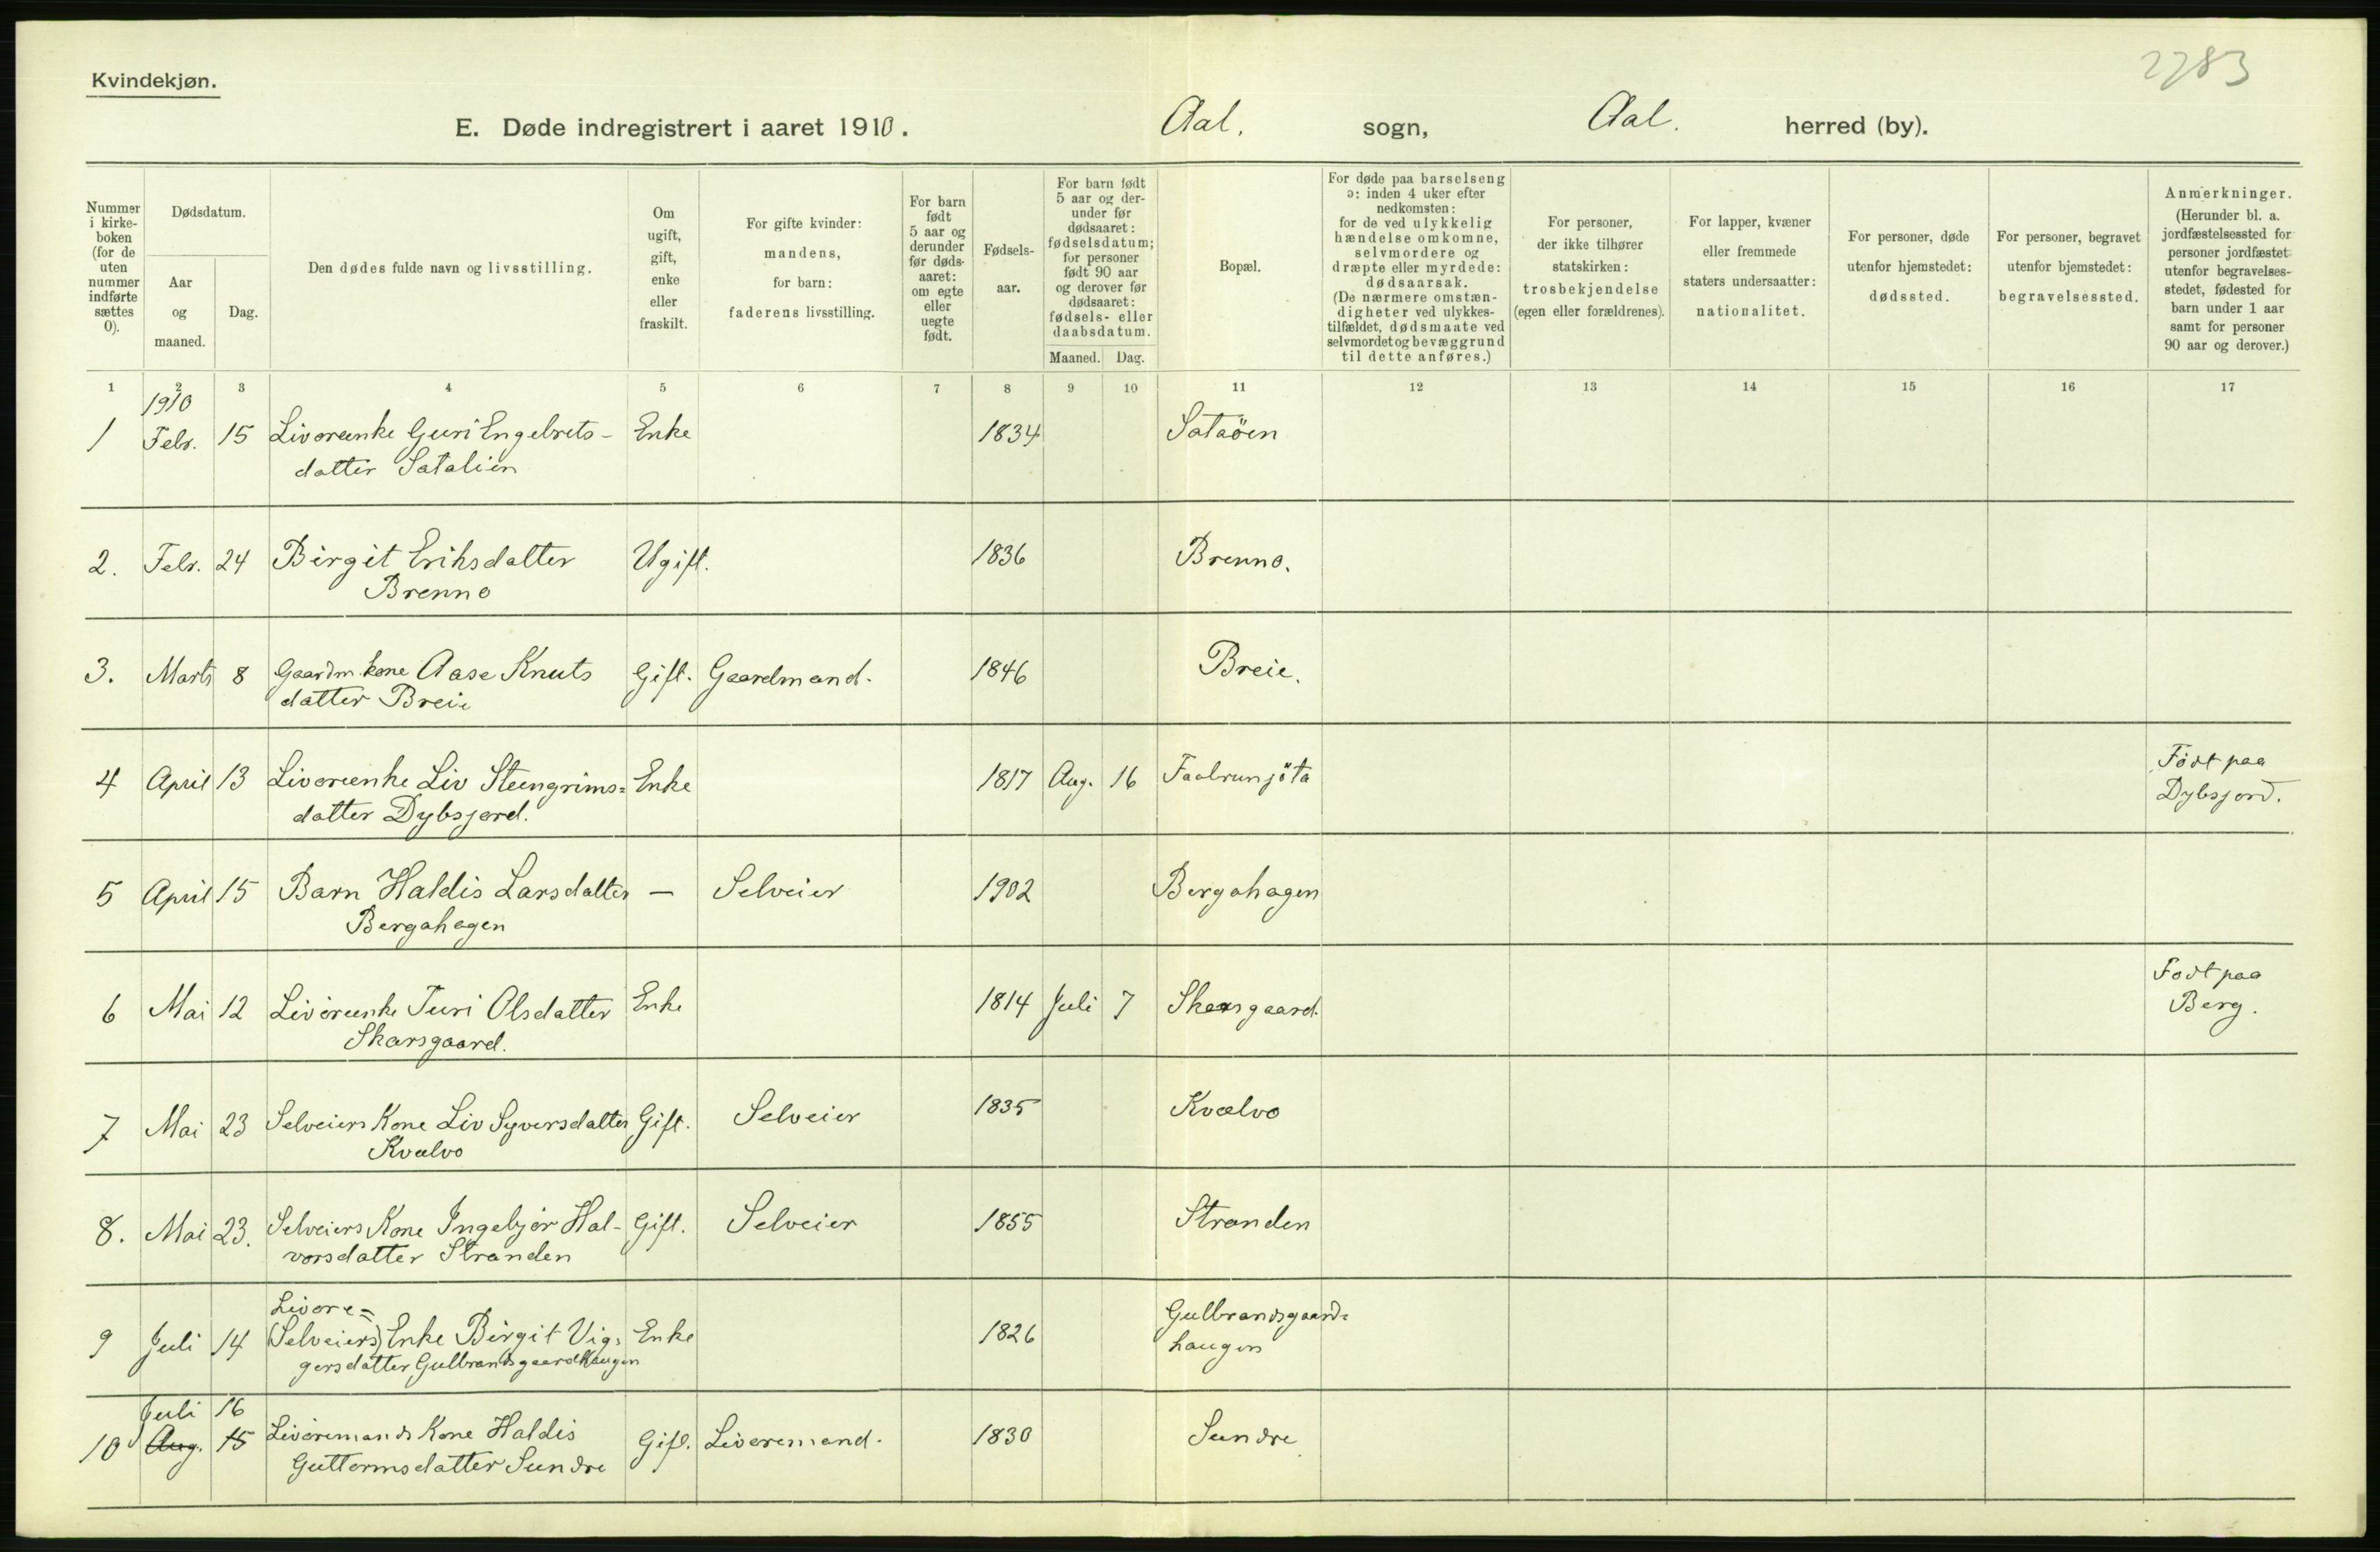 2783
Kvindekjøn.
E. Døde indregistrert i aaret 1910. Aal. sogn, Aal. herred (by).
Nummer i kirke-boken (for de uten nummer indførte sættes 0).
Dødsdatum.
Aar og maaned.
Dag.
Den dødes fulde navn og livsstilling.
Om ugift, gift, enke eller fraskilt.
For gifte kvinder: mandens, for barn: faderens livsstilling.
For barn født 5 aar og derunder før døds-aaret: om egte eller uegte født.
Fødsels-aar.
For barn født 5 aar og der-under før dødsaaret: fødselsdatum; for personer født 90 aar og derover før dødsaaret: fødsels- eller daabsdatum.
Maaned. Dag.
Bopæl.
For døde paa barselseng ɔ: inden 4 uker efter nedkomsten: for de ved ulykkelig hændelse omkomne, selvmordere og dræpte eller myrdede: dødsaarsak. (De nærmere omstæn-digheter ved ulykkes-tilfældet, dødsmaate ved selvmordet og bevæggrund til dette anføres.)
For personer, der ikke tilhører statskirken: trosbekjendelse (egen eller forældrenes).
For lapper, kvæner eller fremmede staters undersaatter: nationalitet.
For personer, døde utenfor hjemstedet: dødssted.
For personer, begravet utenfor hjemstedet: begravelsessted.
Anmerkninger. (Herunder bl. a. jordfæstelsessted for personer jordfæstet utenfor begravelses-stedet, fødested for barn under 1 aar samt for personer 90 aar og derover.)
1 2 3 4 5 6 7 8 9 10 11 12 13 14 15 16 17
1910
1 Febr. 15 Livøreenke Guri Engebrets- Enke 1834 Sataöen
datter Satalien
2. Febr. 24 Birgit Eriksdatter Ugift. 1836 Brenno.
Brenno
3. Marts 8 Gaardm. kone Aase Knuts Gift. Gaardmand. 1846 Breie.
datter Breie
4 April 13 Livøreenke Liv Steengrims= Enke 1817 Aug. 16 Født paa
datter Dybsjord. Dybsjord.
5 April 15 Barn Haldis Larsdatter — Selveier 1902 Bergahagen
Bergahagen
6 Mai 12 Livøreenke Turi Olsdatter Enke 1814 Juli 7 Skarsgaard. Født paa
Skarsgaard. Berg.
7 Mai 23 Selveiers Kone Liv Syversdatter Gift. Selveier 1835 Kvælvo
Kvælvo
8. Mai 23. Selveiers Kone Ingebjør Hal- Gift. Selveier 1855 Stranden
vorsdatter Stranden
Livøre= Gulbrandsgaard=
9 Juli 14 (Selveiers) Enke Birgit Vig= Enke 1826 haugen
gersdatter Gulbrandsgaardhaugen
Juli 16
10 Aug. 15 Livøremands Kone Haldis Gift. Livøremand. 1830 Sundre
Guttormsdatter Sundre